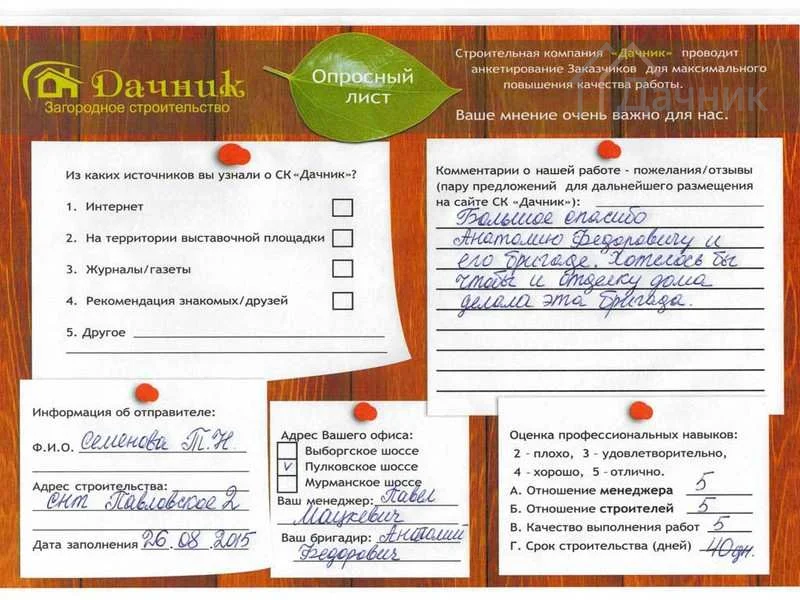 Дачник
Загородное строительство
Опросный
лист
Строительная компания «Дачник» проводит
анкетирование Заказчиков для максимального
повышения качества работы.
Ваше мнение очень важно для нас.
Дачник
Из каких источников вы узнали о СК «Дачник»?
1. Интернет
2. На территории выставочной площадки
3. Журналы/газеты
4. Рекомендация знакомых/друзей
5. Другое
Комментарии о нашей работе - пожелания/отзывы
(пару предложений для дальнейшего размещения
на сайте СК «Дачник»):
Большое спасибо
Анатолию Федоровичу и
его бригаде. Хотелось бы
чтобы и отделку дома
делала эта бригада.
Информация об отправителе:
Ф.И.О. Семенова Т.Н.
Адрес строительства:
СНТ Павловское 2
Дата заполнения 26.08.2015
Адрес Вашего офиса:
Выборгское шоссе
V Пулковское шоссе
Мурманское шоссе
Ваш менеджер: Павел
Мацкевич
Ваш бригадир: Анатолий
Федорович
Дачник
Оценка профессиональных навыков:
2 - плохо, 3 - удовлетворительно,
4 - хорошо, 5 - отлично.
А. Отношение менеджера 5
Б. Отношение строителей 5
В. Качество выполнения работ 5
Г. Срок строительства (дней) 40дн.